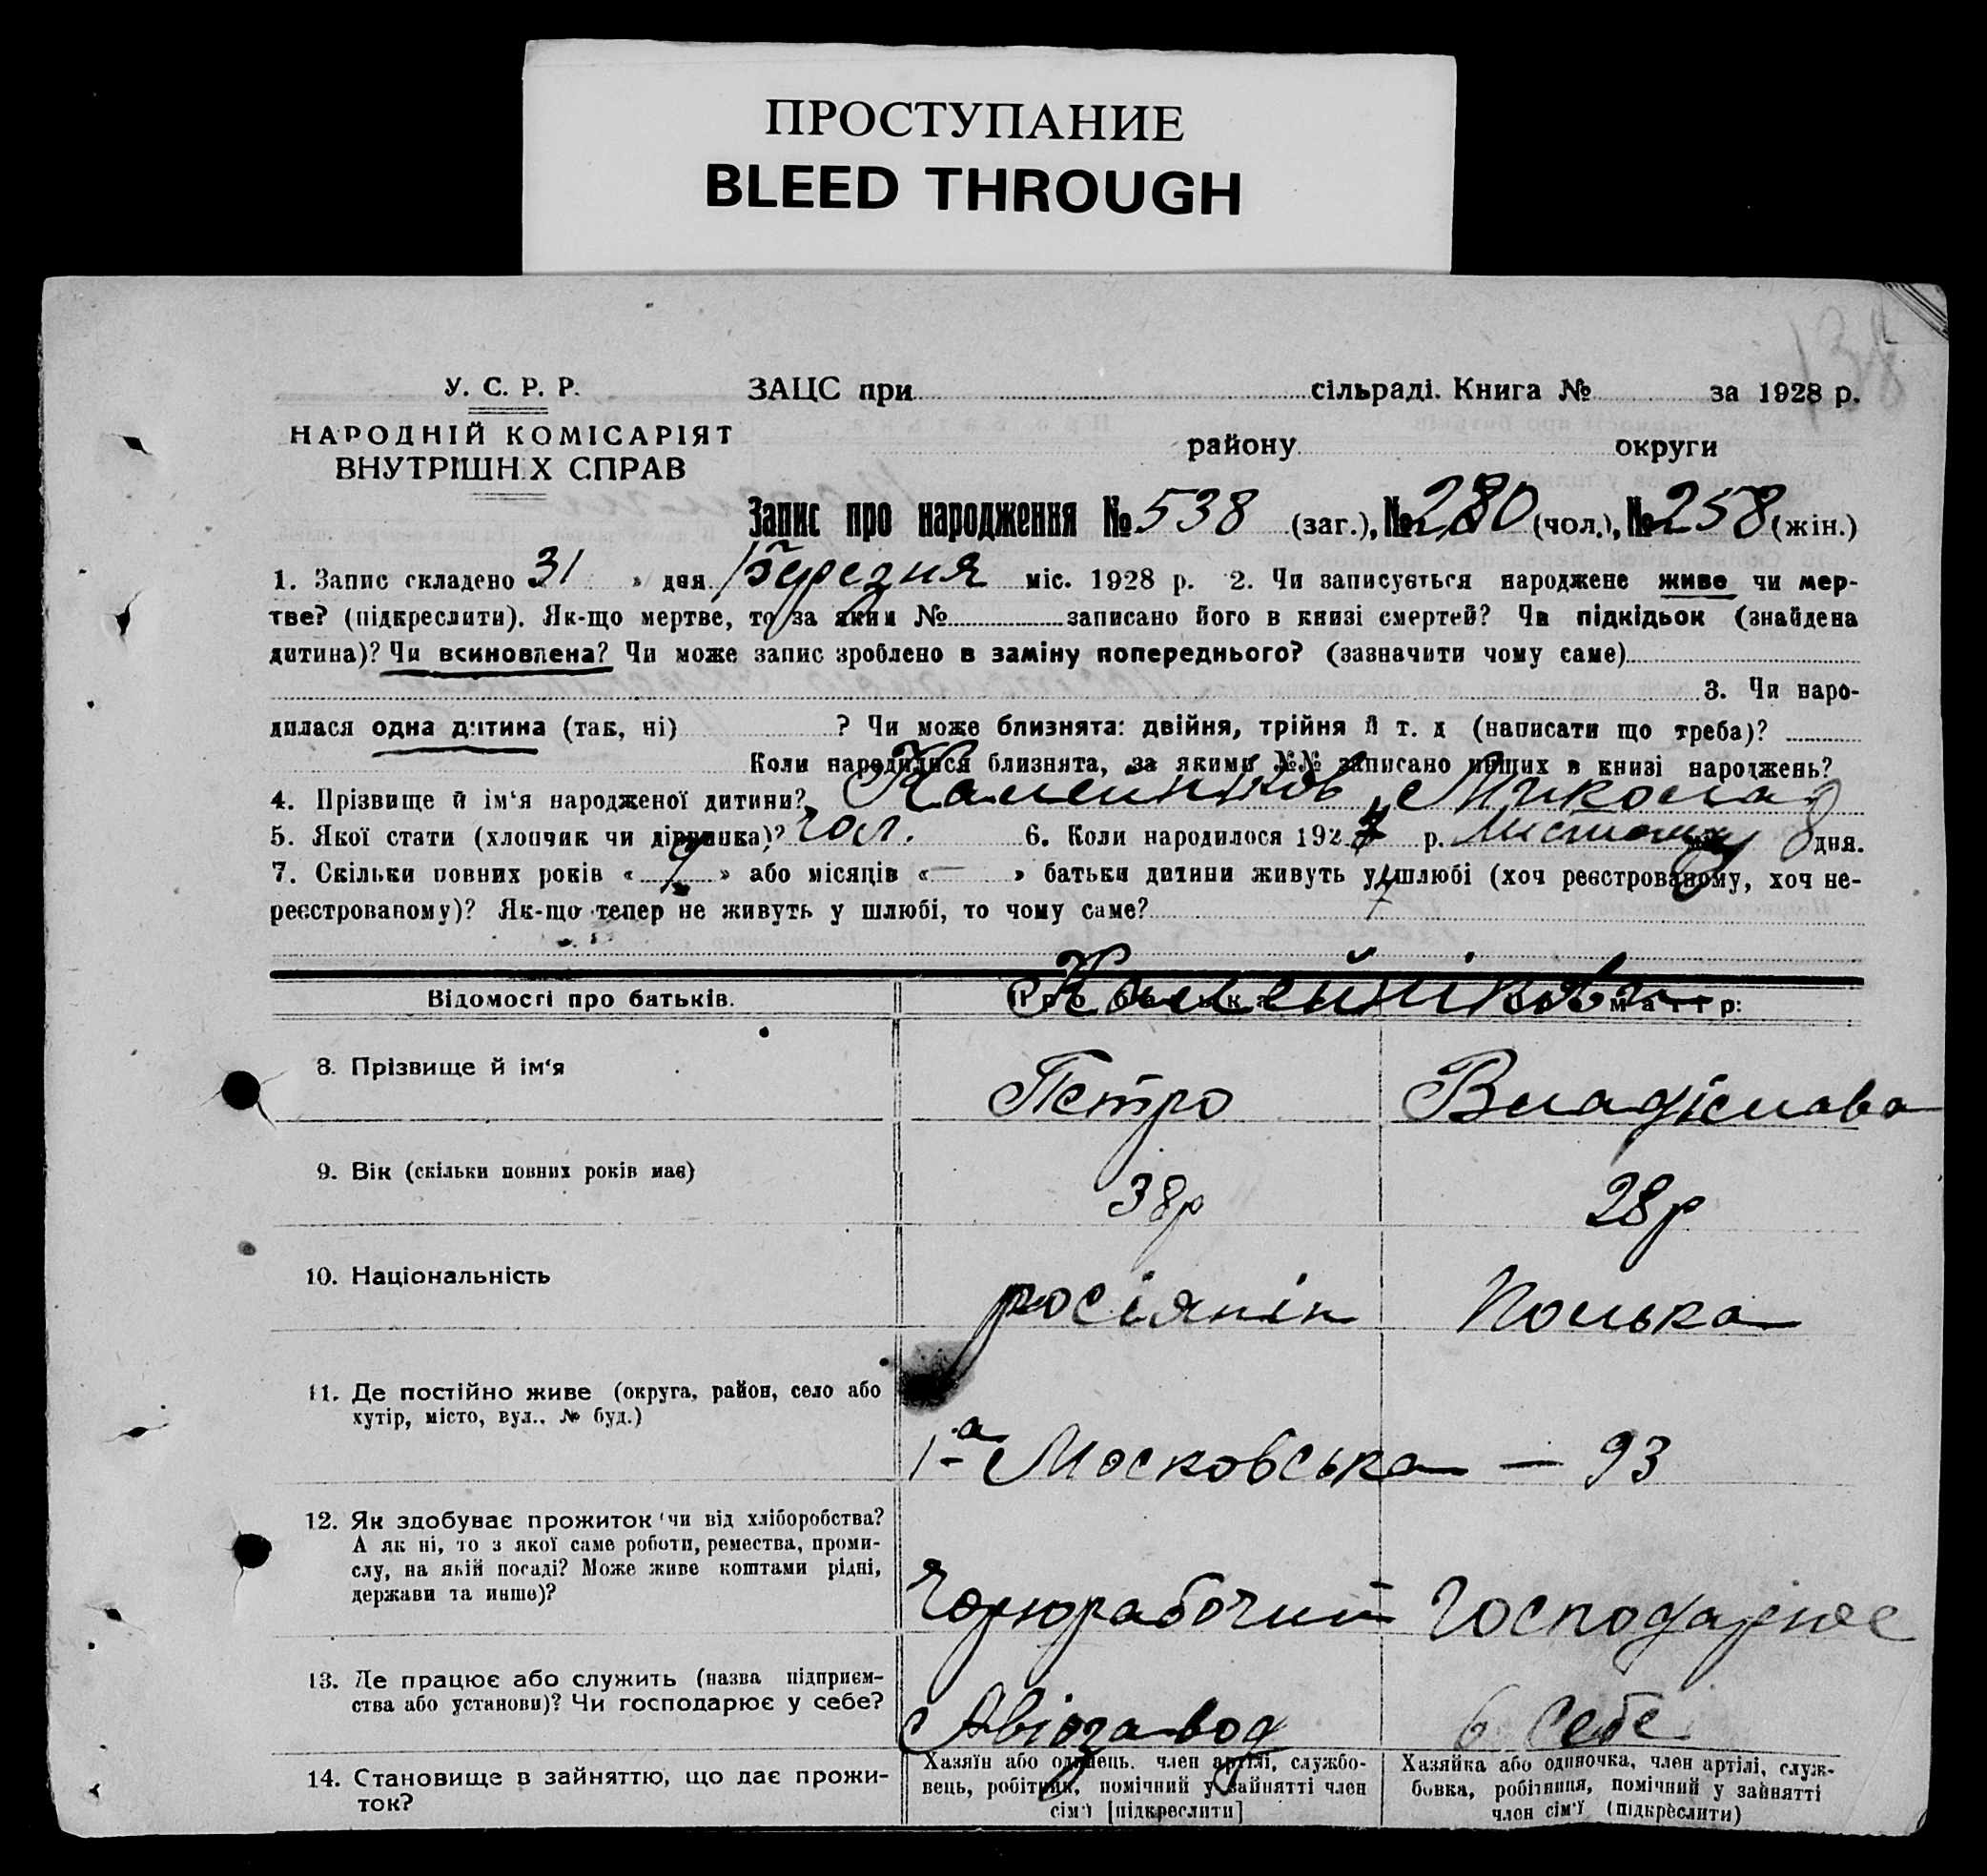 ПРОСТУПАНИЕ
BLEED THROUGH
138
У. С. Р. Р. ЗАЦС при сільраді. Книга № за 1928 р.
НАРОДНІЙ КОМІСАРІЯТ
району округи
ВНУТРІШН.Х СПРАВ
Запис про народження № 538 (заг.), № 280 (чол.), № 258 (жін.)
1. Запис складено 31 » дня березня міс. 1928 р. 2. Чи записується народжене живе чи мер-
тве? (підкреслити). Як-що мертве, то за яким № записано його в книзі смертей? Чи підкідьок (знайдена
дитина)? Чи всиновлена? Чи може запис зроблено в заміну попереднього? (зазначити чому саме)
3. Чи наро-
дилася одна дитина (так, ні) ? Чи може близнята: двійня, трійня й т. д (написати що треба)?
Коли народилися близнята, за якими №№ записано инших в книзі народжень?
4. Прізвище й ім'я народженої дитини? Каменіков Микола
5. Якої стати (хлопчик чи дівчинка)? чол. 6. Коли народилося 1927 р. Листопад 8 дня.
7. Скільки повних років « 7 » або місяців « — » батьки дитини живуть у шлюбі (хоч реєстрованому, хоч не-
реєстрованому)? Як-що тепер не живуть у шлюбі, то чому саме?
Відомості про батьків. Про батька Про матір:
8. Прізвище й ім'я Петро Владіслава
9. Вік (скільки повних років має) 38р 28р
10. Національність росіянін Полька
11. Де постійно живе (округа, район, село або
хутір, місто, вул.. № буд.)
1-а Московська — 93
12. Як здобуває прожиток чи від хліборобства?
А як ні, то з якої саме роботи, ремества, проми-
слу, на якій посаді? Може живе коштами рідні,
держави та инше)?
Чорнорабочий Господарює
13. Де працює або служить (назва підприєм-
ства або установи)? Чи господарює у себе?
Авіозавод в себе
14. Становище в зайняттю, що дає прожи-
ток?
Хазяїн або одинець. член артілі, службо-
вець, робітник, помічний у зайнятті член
сім'ї [підкреслити]
Хазяйка або одиночка, член артілі, служ-
бовка, робітниця, помічний у зайнятті
член сім'ї (підкреслити)